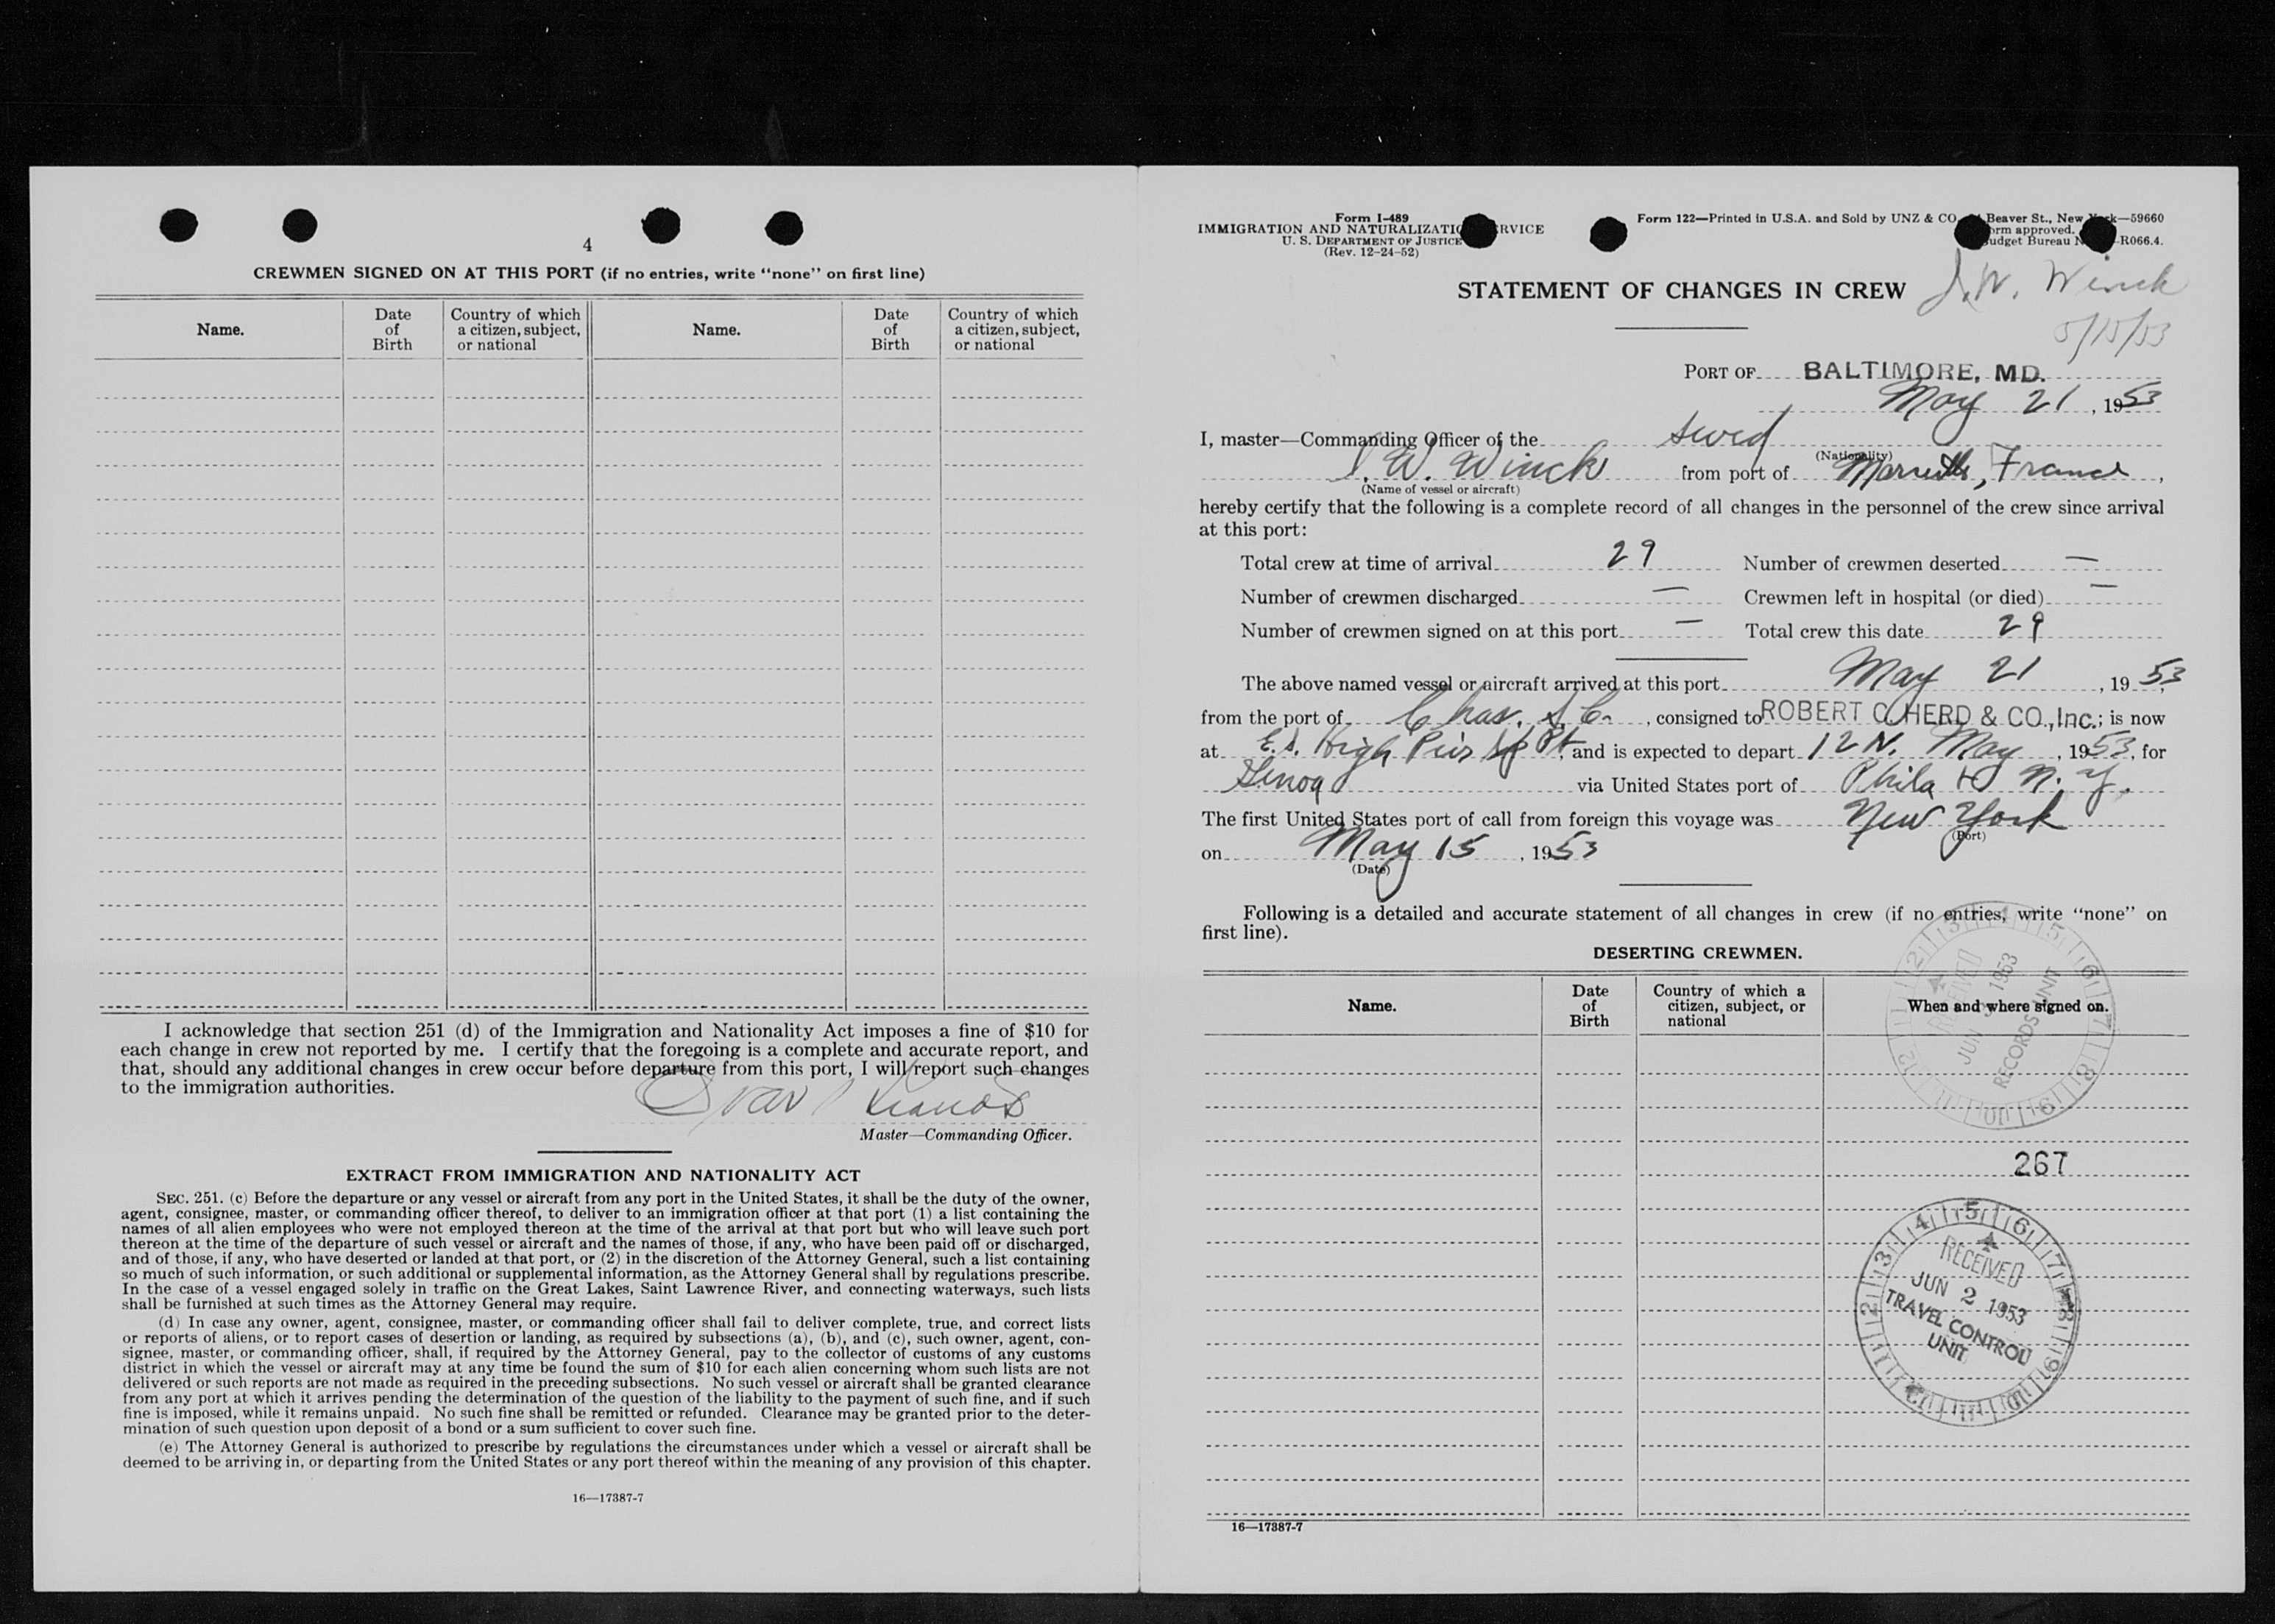 4
CREWMEN SIGNED ON AT THIS PORT (if no entries, write "none" on first line)
Name.
Date
of
Birth
Country of which
a citizen, subject,
or national
Name.
Date
of
Birth
Country of which
a citizen, subject,
or national
I acknowledge that section 251 (d) of the Immigration and Nationality Act imposes a fine of $10 for
each change in crew not reported by me. I certify that the foregoing is a complete and accurate report, and
that, should any additional changes in crew occur before departure from this port, I will report such changes
to the immigration authorities.
Master—Commanding Officer.
EXTRACT FROM IMMIGRATION AND NATIONALITY ACT
SEC. 251. (c) Before the departure or any vessel or aircraft from any port in the United States, it shall be the duty of the owner,
agent, consignee, master, or commanding officer thereof, to deliver to an immigration officer at that port (1) a list containing the
names of all alien employees who were not employed thereon at the time of the arrival at that port but who will leave such port
thereon at the time of the departure of such vessel or aircraft and the names of those, if any, who have been paid off or discharged,
and of those, if any, who have deserted or landed at that port, or (2) in the discretion of the Attorney General, such a list containing
so much of such information, or such additional or supplemental information, as the Attorney General shall by regulations prescribe.
In the case of a vessel engaged solely in traffic on the Great Lakes, Saint Lawrence River, and connecting waterways, such lists
shall be furnished at such times as the Attorney General may require.
(d) In case any owner, agent, consignee, master, or commanding officer shall fail to deliver complete, true, and correct lists
or reports of aliens, or to report cases of desertion or landing, as required by subsections (a), (b), and (c), such owner, agent, con-
signee, master, or commanding officer, shall, if required by the Attorney General, pay to the collector of customs of any customs
district in which the vessel or aircraft may at any time be found the sum of $10 for each alien concerning whom such lists are not
delivered or such reports are not made as required in the preceding subsections. No such vessel or aircraft shall be granted clearance
from any port at which it arrives pending the determination of the question of the liability to the payment of such fine, and if such
fine is imposed, while it remains unpaid. No such fine shall be remitted or refunded. Clearance may be granted prior to the deter-
mination of such question upon deposit of a bond or a sum sufficient to cover such fine.
(e) The Attorney General is authorized to prescribe by regulations the circumstances under which a vessel or aircraft shall be
deemed to be arriving in, or departing from the United States or any port thereof within the meaning of any provision of this chapter.
16—17387-7
Form I-489
IMMIGRATION AND NATURALIZATI RVICE
U. S. DEPARTMENT OF JUSTICE
(Rev. 12-24-52)
Form 122—Printed in U.S.A. and Sold by UNZ & CO. Beaver St., New k—59660
orm approved.
udget Bureau N -R066.4.
STATEMENT OF CHANGES IN CREW J. W. Winck
5/15/53
PORT OF BALTIMORE, MD.
May 21, 1953
I, master—Commanding Officer of the Swed
(Nationality)
J. W. Winck from port of France,
(Name of vessel or aircraft)
hereby certify that the following is a complete record of all changes in the personnel of the crew since arrival
at this port:
Total crew at time of arrival 29 Number of crewmen deserted —
Number of crewmen discharged — Crewmen left in hospital (or died) —
Number of crewmen signed on at this port — Total crew this date 29
The above named vessel or aircraft arrived at this port May 21, 1953,
from the port of Chas. S. C., consigned to ROBERT C. HERD & CO., Inc.; is now
at High Pier Pt, and is expected to depart 12 N. May, 1953, for
Genoa via United States port of Phila + N. Y.
The first United States port of call from foreign this voyage was New York
(Port)
on May 15, 1953
(Date)
Following is a detailed and accurate statement of all changes in crew (if no entries, write "none" on
first line).
DESERTING CREWMEN.
Name.
Date
of
Birth
Country of which a
citizen, subject, or
national
When and where signed on.
RECEIVED
JUN 1953
RECORDS UNIT
267
RECEIVED
JUN 2 1953
TRAVEL CONTROL
UNIT
16—17387-7